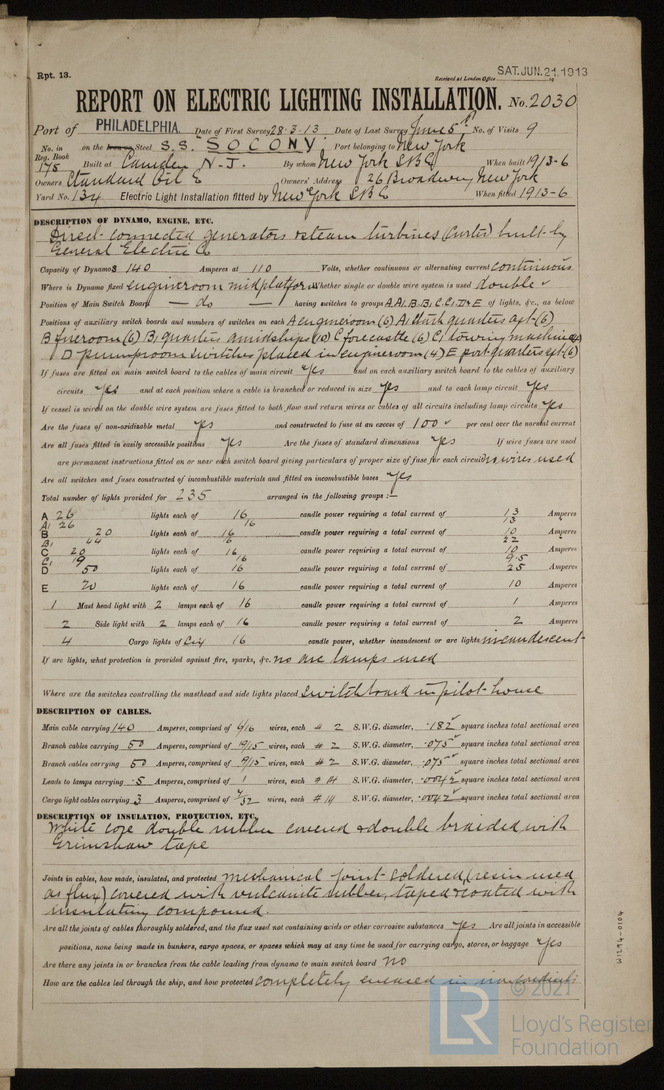 Rpt. 13.
Received at London Office SAT. JUN. 21. 1913
REPORT ON ELECTRIC LIGHTING INSTALLATION. No. 2030
Port of PHILADELPHIA. Date of First Survey 28-3-13 Date of Last Survey June 5th No. of Visits 9
No. in Reg. Book 175 on the Iron Steel S.S. "SOCONY" Port belonging to New York
Built at Camden N-J. By whom New York S.B.Co When built 1913-6
Owners Standard Oil Co Owners' Address 26 Broadway New York
Yard No. 134 Electric Light Installation fitted by New York S.B.Co When fitted 1913-6
DESCRIPTION OF DYNAMO, ENGINE, ETC.
Direct connected generators & steam turbines (Curtis) built by
General Electric Co
Capacity of Dynamos 140 Amperes at 110 Volts, whether continuous or alternating current continuous
Where is Dynamo fixed engineroom mid platform Whether single or double wire system is used double
Position of Main Switch Board — do — having switches to groups A A1 B B1 C C1 D & E of lights, &c., as below
Positions of auxiliary switch boards and numbers of switches on each A engineroom (6) A1 quarters aft (6)
B fireroom (6) B1 quarters amidships (10) C forecastle (6) C1 towing machine
D pumproom switches placed in engineroom (4) E port quarters aft (6)
If fuses are fitted on main switch board to the cables of main circuit yes and on each auxiliary switch board to the cables of auxiliary
circuits yes and at each position where a cable is branched or reduced in size yes and to each lamp circuit yes
If vessel is wired on the double wire system are fuses fitted to both flow and return wires or cables of all circuits including lamp circuits yes
Are the fuses of non-oxidizable metal yes and constructed to fuse at an excess of 100 per cent over the normal current
Are all fuses fitted in easily accessible positions yes Are the fuses of standard dimensions yes If wire fuses are used
are permanent instructions fitted on or near each switch board giving particulars of proper size of fuse for each circuit no wires used
Are all switches and fuses constructed of incombustible materials and fitted on incombustible bases yes
Total number of lights provided for 235 arranged in the following groups :—
A 26 lights each of 16 candle power requiring a total current of 13 Amperes
A1 26 16 13
B 20 lights each of 16 candle power requiring a total current of 10 Amperes
B1 44 16 22
C 20 lights each of 16 candle power requiring a total current of 10 Amperes
C1 19 16 9.5
D 50 lights each of 16 candle power requiring a total current of 25 Amperes
E 20 lights each of 16 candle power requiring a total current of 10 Amperes
1 Mast head light with 2 lamps each of 16 candle power requiring a total current of 1 Amperes
2 Side light with 2 lamps each of 16 candle power requiring a total current of 2 Amperes
4 Cargo lights of six 16 candle power, whether incandescent or arc lights incandescent
If arc lights, what protection is provided against fire, sparks, &c. no arc lamps used
Where are the switches controlling the masthead and side lights placed switchboard in pilot-house
DESCRIPTION OF CABLES.
Main cable carrying 140 Amperes, comprised of wires, each # 2 S.W.G. diameter, .182 square inches total sectional area
Branch cables carrying 50 Amperes, comprised of 19/15 wires, each # 2 S.W.G. diameter, .075 square inches total sectional area
Branch cables carrying 50 Amperes, comprised of 19/15 wires, each # 2 S.W.G. diameter, .075 square inches total sectional area
Leads to lamps carrying .5 Amperes, comprised of 1 wires, each # 14 S.W.G. diameter, .0042 square inches total sectional area
Cargo light cables carrying 3 Amperes, comprised of 7/32 wires, each # 14 S.W.G. diameter, .0042 square inches total sectional area
DESCRIPTION OF INSULATION, PROTECTION, ETC.
White core double rubber covered & double braided with
Grimshaw tape
Joints in cables, how made, insulated, and protected mechanical joint soldered, (resin used
as flux) covered with vulcanite rubber, taped & coated with
insulating compound.
Are all the joints of cables thoroughly soldered, and the flux used not containing acids or other corrosive substances yes Are all joints in accessible
positions, none being made in bunkers, cargo spaces, or spaces which may at any time be used for carrying cargo, stores, or baggage yes
Are there any joints in or branches from the cable leading from dynamo to main switch board no
How are the cables led through the ship, and how protected completely encased in iron conduit
W1294-0104
© 2021
LR
Lloyd's Register
Foundation